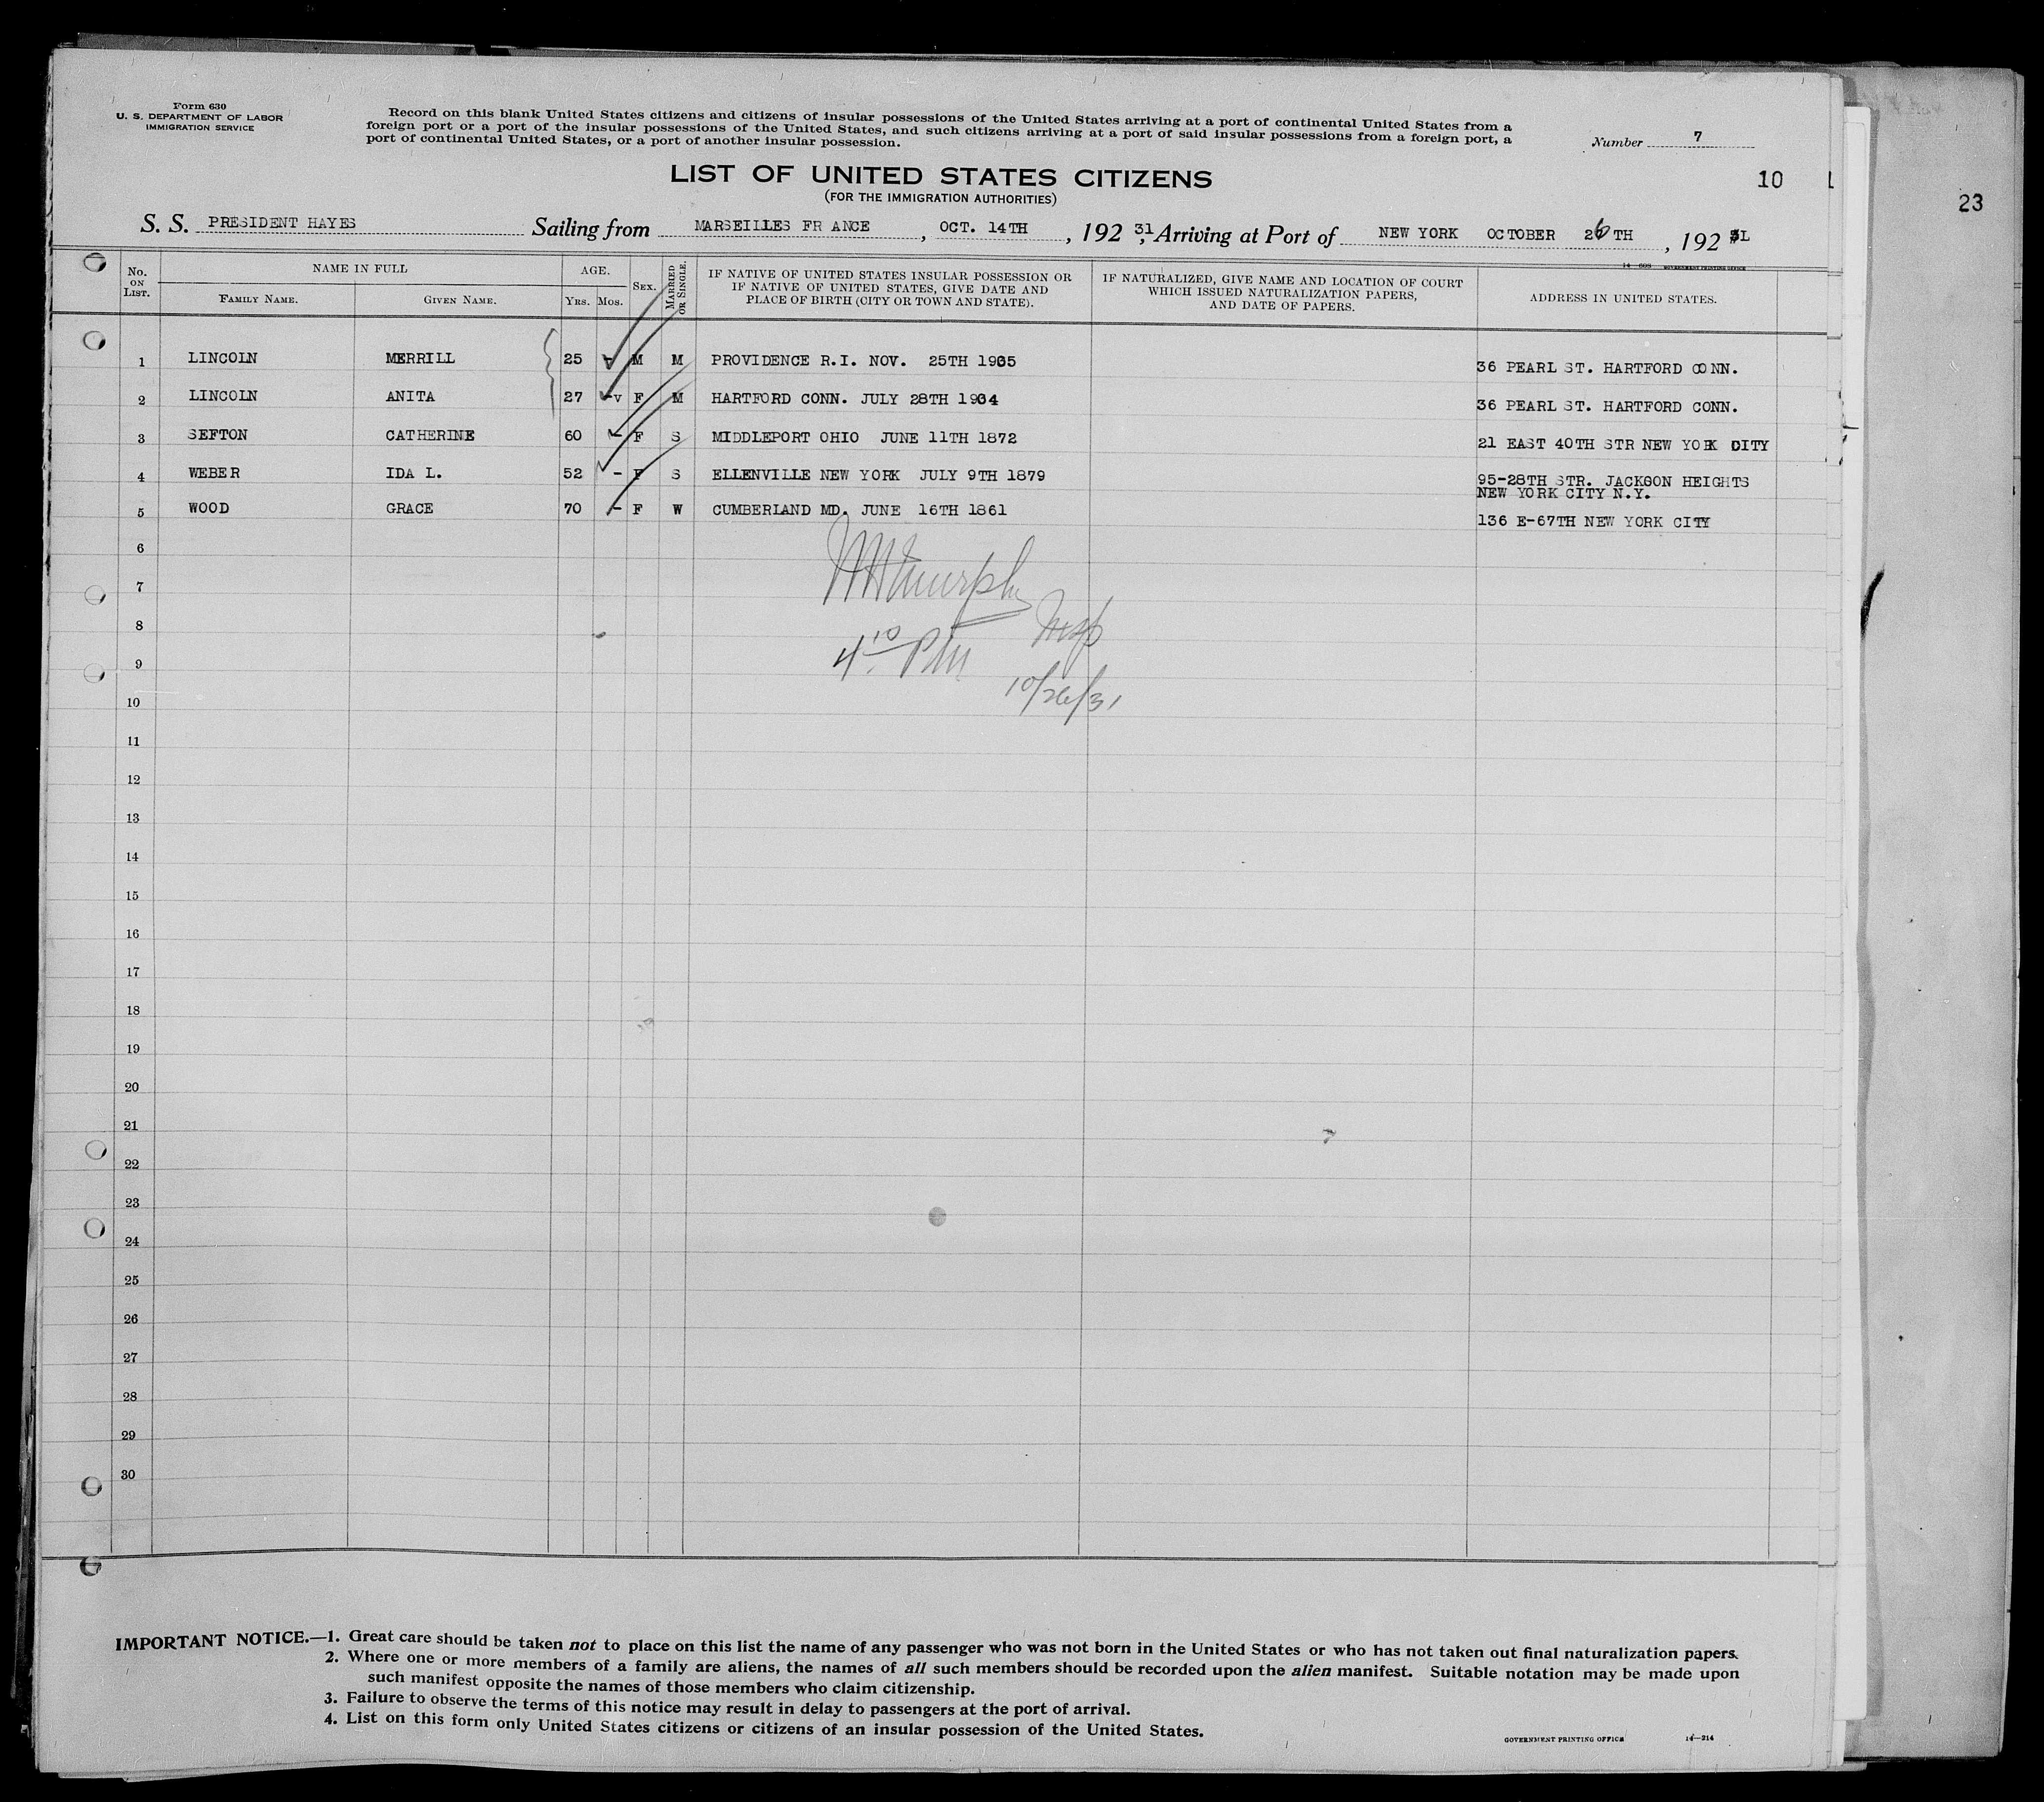 Form 630
U. S. DEPARTMENT OF LABOR
IMMIGRATION SERVICE
Record on this blank United States citizens and citizens of insular possessions of the United States arriving at a port of continental United States from a
foreign port or a port of the insular possessions of the United States, and such citizens arriving at a port of said insular possessions from a foreign port, a
port of continental United States, or a port of another insular possession.
Number 7
LIST OF UNITED STATES CITIZENS
(FOR THE IMMIGRATION AUTHORITIES)
10
23
S. S. PRESIDENT HAYES Sailing from MARSEILLES FR ANCE, OCT. 14TH, 192 31, Arriving at Port of NEW YORK OCTOBER 26TH, 192 31
GOVERNMENT PRINTING OFFICE
No. ON LIST. NAME IN FULL FAMILY NAME. GIVEN NAME. AGE. YRS. MOS. SEX. MARRIED OR SINGLE.
IF NATIVE OF UNITED STATES INSULAR POSSESSION OR
IF NATIVE OF UNITED STATES, GIVE DATE AND
PLACE OF BIRTH (CITY OR TOWN AND STATE).
IF NATURALIZED, GIVE NAME AND LOCATION OF COURT
WHICH ISSUED NATURALIZATION PAPERS,
AND DATE OF PAPERS.
ADDRESS IN UNITED STATES.
1 LINCOLN MERRILL 25 M M PROVIDENCE R.I. NOV. 25TH 1905 36 PEARL ST. HARTFORD CONN.
2 LINCOLN ANITA 27 v F M HARTFORD CONN. JULY 28TH 1904 36 PEARL ST. HARTFORD CONN.
3 SEFTON CATHERINE 60 - F S MIDDLEPORT OHIO JUNE 11TH 1872 21 EAST 40TH STR NEW YORK CITY
4 WEBER IDA L. 52 - F S ELLENVILLE NEW YORK JULY 9TH 1879 95-28TH STR. JACKSON HEIGHTS
NEW YORK CITY N.Y.
5 WOOD GRACE 70 - F W CUMBERLAND MD. JUNE 16TH 1861 136 E-67TH NEW YORK CITY
6
7
Murphy
8
Insp
9
4 10 PM
10
10/26/31
11
12
13
14
15
16
17
18
19
20
21
22
23
24
25
26
27
28
29
30
IMPORTANT NOTICE.—1. Great care should be taken not to place on this list the name of any passenger who was not born in the United States or who has not taken out final naturalization papers.
2. Where one or more members of a family are aliens, the names of all such members should be recorded upon the alien manifest. Suitable notation may be made upon
such manifest opposite the names of those members who claim citizenship.
3. Failure to observe the terms of this notice may result in delay to passengers at the port of arrival.
4. List on this form only United States citizens or citizens of an insular possession of the United States.
GOVERNMENT PRINTING OFFICE 14—214